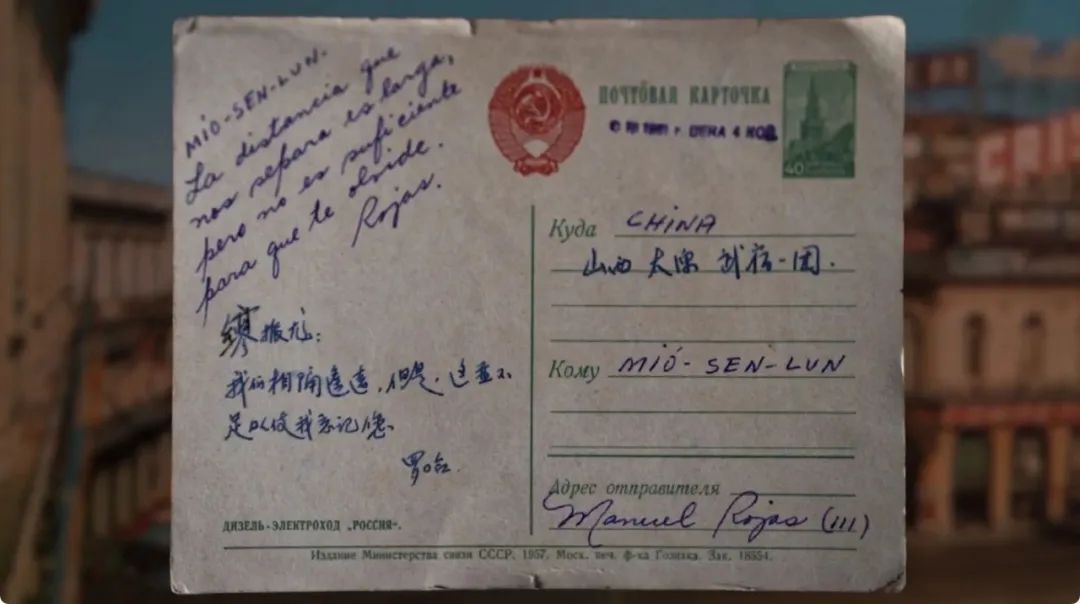 MIÓ-SEN-LUN.
La distancia que
nos separa es larga,
pero no es suficiente
para que te olvide.
Rojas.
缪振龙:
我们相隔遥远,但是,这并不
足以使我忘记您。
罗哈
ДИЗЕЛЬ-ЭЛЕКТРОХОД „РОССИЯ“.
ПОЧТОВАЯ КАРТОЧКА
1961 г. ЦЕНА 4 КОП.
40
Куда CHINA
山西 太原 武宿一团.
Кому MIÓ-SEN-LUN
Адрес отправителя
Manuel Rojas (III)
Издание Министерства связи СССР. 1957. Моск. печ. ф-ка Гознака. Зак. 18554.
CRIS